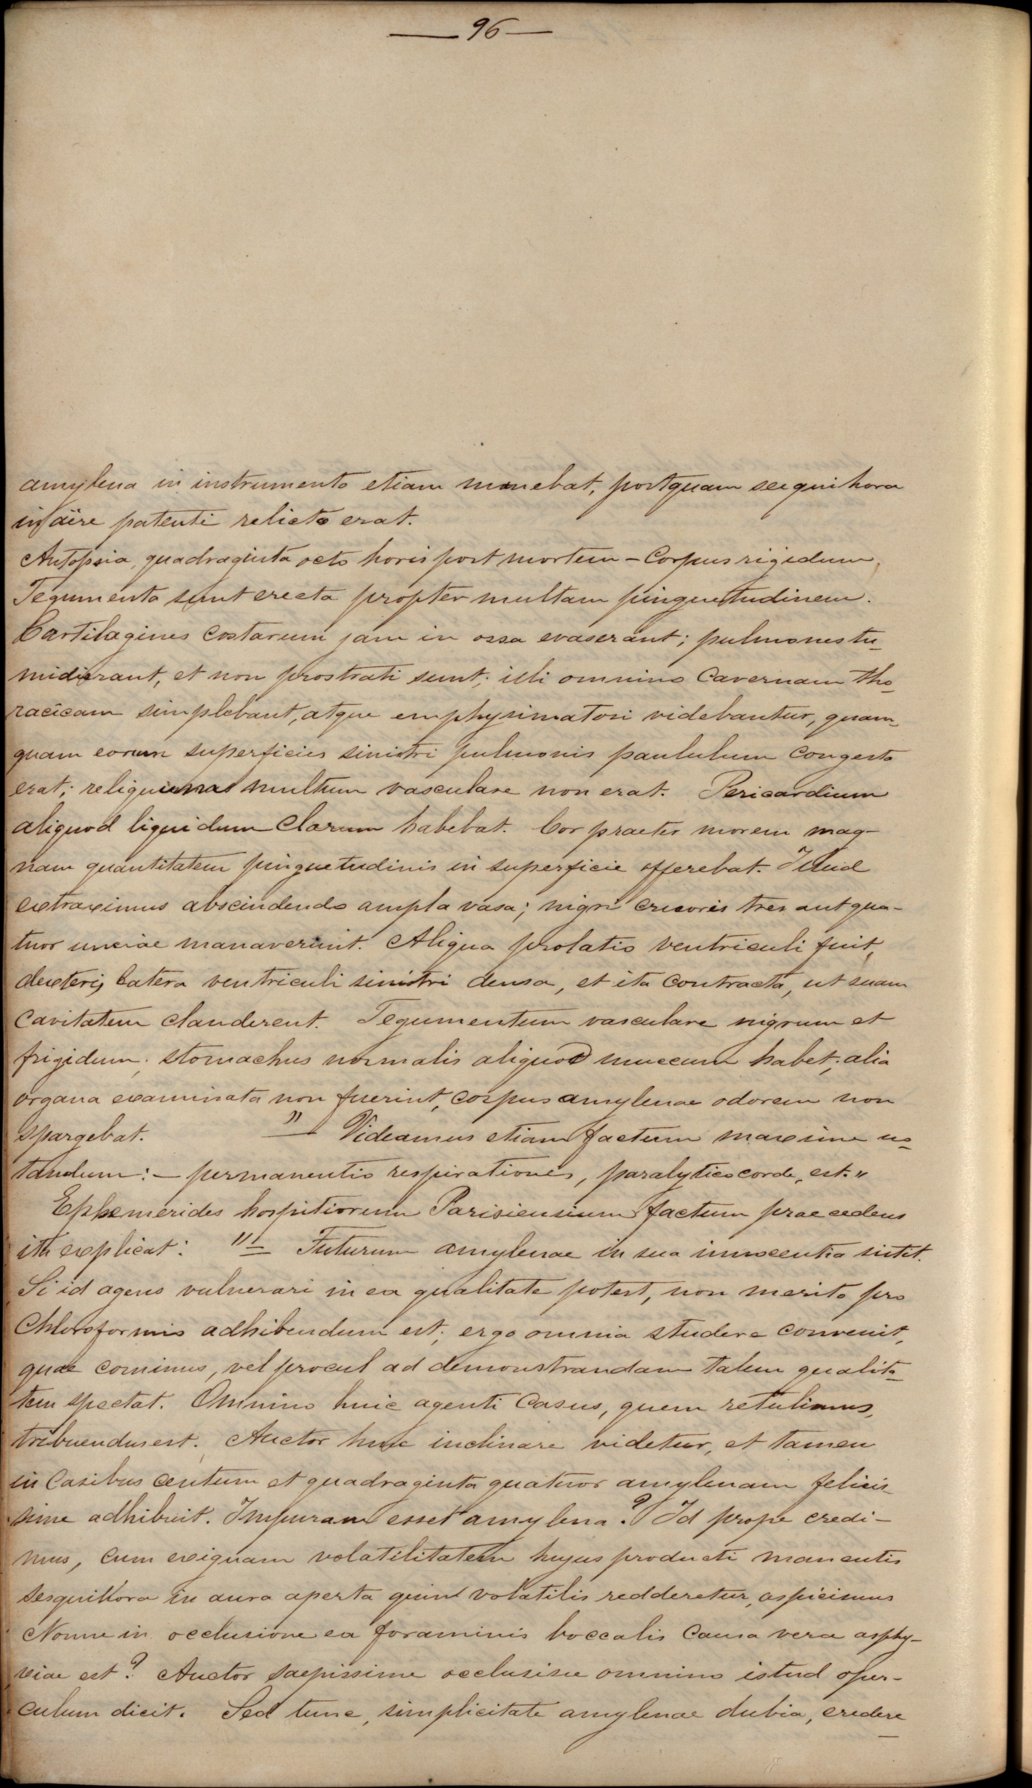 — 96 —
amylena in instrumento etiam manebat, postquam sesquihora
in äire patenti relicta erat.
Autopsia quadraginta octo horis post mortem - Corpus rigidum,
Tegumenta sunt erecta propter multam pinguetudinem.
Cartilagines costarum jam in ossa evaserant; pulmones tu-
midi erant, et non prostrati sunt; illi omnino Cavernam tho-
racicam implebant, atque emphysimatosi videbantur, quam-
quam eorum superficies sinistri pulmonis paululum congesta
erat; multum vasculare non erat. Pericardium
aliquod liquidum Clarum habebat. Cor praeter morem mag-
nam quantitatem pinguetudinis in superficie offerebat. Illud
extraximus abscindendo ampla vasa; nigri cruoris tres aut qua-
tuor unciae manaverunt. Aliqua prolatio ventriculi fuit,
dexteri, latera ventriculi sinistri densa, et ita contracta, ut suam
Cavitatem clauderent. Tegumentum vasculare nigrum et
frigidum; stomachus normalis aliquod muccum habet; alia
organa examinata non fuerint, corpus amylenae odorem non
spargebat. "— Videamus etiam factum maxime no-
tandum: — permanentis respirationes, paralytico corde, est."
Ephemerides hospitiorum Parisiensium factum praecedens
ita explicat: "— Futurum amylenae in sua innocentia sistit.
Si id agens vulnerari in ea qualitate potest, non merito pro
Chloroformio adhibendum est; ergo omnia studere convenit,
quae cominus, vel procul ad demonstrandam talem qualita-
tem spectat. Omnino huic agenti casus, quem retulimus,
tribuendus est. Auctor huc inclinare videtur, et tamen
in Casibus centum et quadraginta quatuor amylenam felicis-
sime adhibuit. Impuram esset amylena? Id prope credi-
mus, cum exiguam volatilitatem hujus producti manentis
sesquihora in aura aperta quin volatilis redderetur, aspicimus
Nonne in occlusione ea foraminis boccalis causa vera asphy-
xiae est? Auctor saepissime occlusisse omnino istud oper-
culum dicit. Sed tunc, simplicitate amylenae dubia, credere